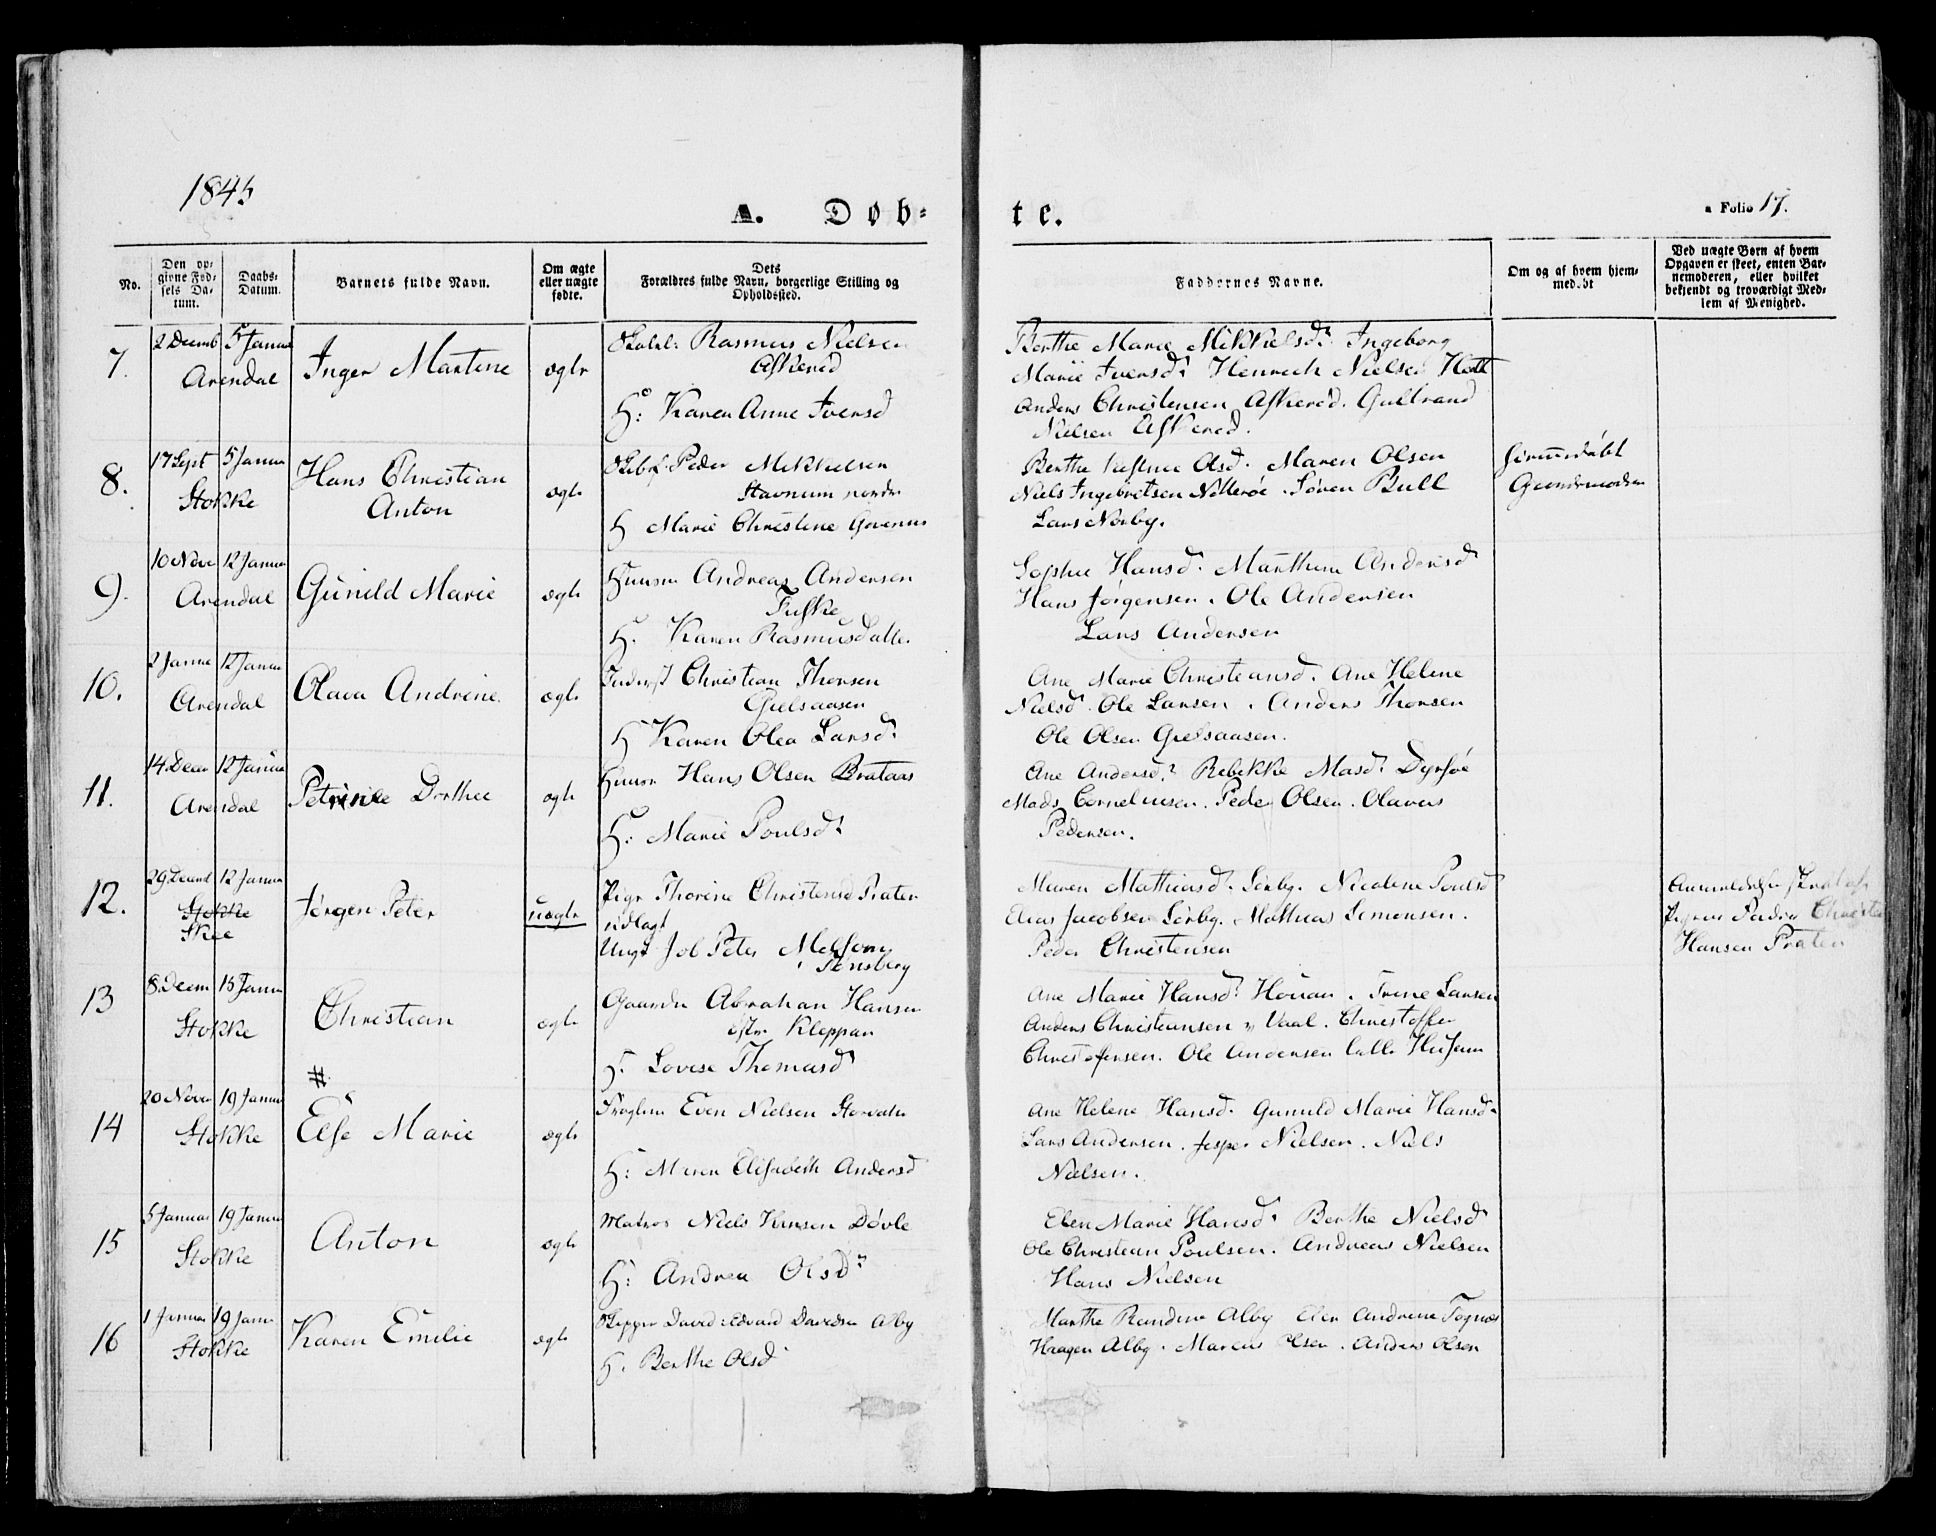 1845
A. Døb-
te.
a Folio 17.
No.
Den op-
givne Fød-
sels Da-
tum.
Daabs-
Datum.
Barnets fulde Navn.
Om ægte
eller uægte
fødte.
Dets
Forældres fulde Navn, borgerlige Stilling og
Opholdssted.
Faddernes Navne.
Om og af hvem hjem-
medøbt
Ved uægte Børn af hvem
Opgaven er skeet, enten Bar-
nemoderen, eller hvilket
bekjendt og troværdigt Med-
lem af Menighed.
7.
2 Decemb 5 Januar
Arendal
Inger Martine
ægte
Rasmus Nielsen
Askerød
H: Karen Anne Iversd
Berthe Marie Mikkelsdr. Ingeborg
Marie Iversdr Henrich Nielsen
Anders Christensen Askerød. Gulbrand
Nielsen Askerød.
8.
17 Sept 5 Janua
Stokke
Hans Christian
Anton
ægte
Peder Mikkelsen
Stavnum nordre
H Marie Christine
Berthe Olsd. Maren Olsen
Niels Ingebretsen Nøtterøe. Søren Bull
Lars Norby.
9.
10 Nove 12 Janua
Arendal
Gunild Marie
ægte
Huusm Andreas Andersen
Fuske
H. Karen Rasmusdatter
Sophie Hansd. Marthine Andersd
Hans Jørgensen. Ole Andersen
Lars Andersen
10.
2 Janua 12 Janua
Arendal
Olava Andrine
ægte
Inderst Christian Thorsen
Gjelsaasen
H Karen Olea Larsd.
Ane Marie Christiansd. Ane Helene
Nielsd. Ole Larsen. Anders Thorsen
Ole Olsen Gjelsaasen.
11.
14 Decem 12 Janua
Arendal
Dorthee
ægte
Huusm Hans Olsen Brataas
H: Marie Poulsdr
Ane Andersdr Rebekke Masdr Dyrsøe
Mads Cornelius­en. Peder Olsen. Olavus
Pedersen.
12.
29 Decemb 12 Janua
Stokke
Skee
Jørgen Peter
uægte
Pige Thorine Christensd Praten
udlagt
Ungk Job Peter Melsom
i Tønsberg
Maren Mathiasd. Sørby. Nicoline Poulsd
Elias Jacobsen Sørby. Mathias Simonsen.
Peder Christensen
Anmeldelse skeet af
Pigens Fader Christen
Hansen Praten
13
8 Decem 15 Janua
Stokke
Christian
ægte
Gaardm Abraham Hansen
østr. Kleppan
H. Lovise Thomasd
Ane Marie Hansdr. Houan. Trine Larsen
Anders Christiansen n Vaal. Christoffer
Christofersen. Ole Andersen lille Husum
#
14
20 Novem 19 Janua
Stokke
Else Marie
ægte
Even Nielsen
H: Maren Elisabeth Andersd
Ane Helene Hansd. Gunild Marie Hansd.
Lars Andersen. Jesper Nielsen. Niels
Nielsen.
15
5 Januar 19 Janua
Stokke
Anton
ægte
Matros Niels Hansen Døvle
H: Andrea Olsdr
Elen Marie Hansdr Berthe Nielsd
Ole Christian Poulsen. Andreas Nielsen
Hans Nielsen
16
1 Januar 19 Janu
Stokke
Karen Emilie
ægte
Skipper David Edvard Davidsen Alby
H. Berthe Olsd
Marthe Randine Alby Elen Andrine
Haagen Alby. Marcus Olsen. Anders Olsen